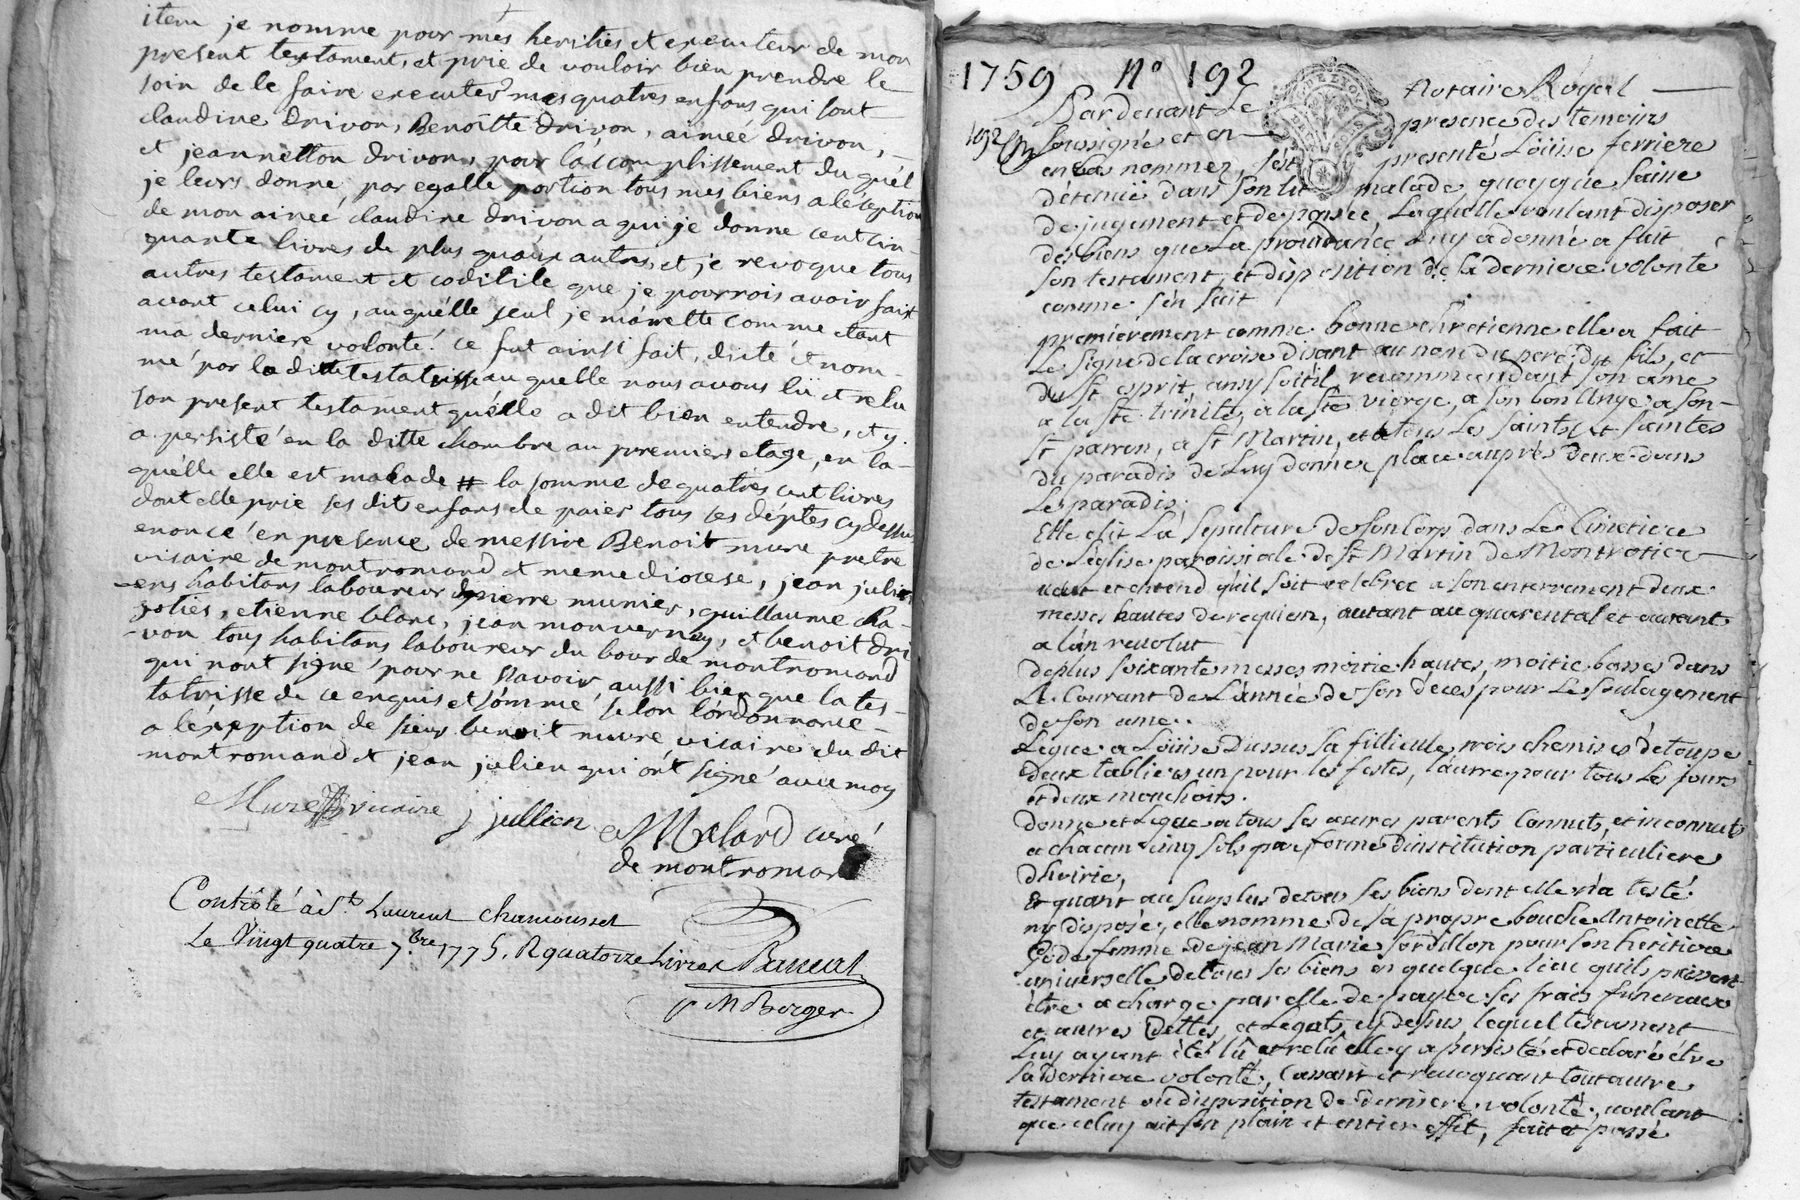 item je nomme pour mes heritiés et executeur de mon
present testament, et prie de vouloir bien prendre le
soin de le faire executer mes quatres enfans qui sont
claudine drivon, Benoitte drivon, aimeé drivon,
et jeannetton drivon, pour l'accomplissement du quél
je leurs donne par egalle portion tous mes biens a léxeption
de mon aineé claudine drivon a qui je donne cent cin-
quante livres de plus quaux autres, et je revoque tous
autres testament et codicile que je pourrois avoir fait
avant celui cy, au quélle seul je m'arrette comme etant
ma derniere volonté. ce fut ainsi fait, dicté et nom-
mé par la ditte testatrisse au quelle nous avons lü et relu
son present testament quélle a dit bien entendre, et y
a persisté en la ditte chambre au premiers etage, en la-
quélle elle est malade # la somme de quatres cent livres
dont elle prie ses dit enfans de paier tous ses déptes cy dessus
enoncé en presence de messire Benoit mure pretre
vicaire de montromand et meme diocese, jean julien
ens habitans laboureur pierre munier, guillaume cha-
potiés, etienne blanc, jean monverney, et benoit dri
-von tous habitans laboureur du bour de montromand
qui nont signé pour ne sçavoir, aussi bien que la tes-
tatrisse de ce enquis et sommé selon l'ordonnance
a léxeption de sieur benoit mure vicaire du dit
montromand et jean julien qui ont signé avec moy
Mure vicaire j jullien Malard curé
de montromand
Contrôlé à St. Laurent chamousset
Le Vingt quatre 7.bre 1775. R quatorze Livres
M Berger
1759 N° 192
Pardevant Le Notaire Royal
192 soussigné et en presence des temoins
en bas nommez, s'est presenté Loüise ferriere
détenüe dans son lit malade quoyque saine
de jugement et de pensée, Laquelle voulant disposer
des biens que La providance Luy a donné a fait
son testament, et disposition de sa derniere volonté
comme s'en suit
premierement comme bonne chretienne elle a fait
Le signe de la croix disant au nom du pere, du fils, et
du St esprit ainsy soitil recommandant son ame
a la Ste trinité, a la Ste vierge, a son bon Ange a son
St patron, a St Martin, et a tous Les Saints, et Saintes
du paradis de Luy donner place auprès deux dans
Le paradis;
Elle elit La sepulture de son Corp dans Le Cimetiere
de L'eglise paroissiale de St Martin de Montrotier
veut et entend quil soit celebrée a son enterrement deux
messes hautes de requiem, autant au quarental et autant
a l'an revolut
deplus soixante messes moitié hautes, moitié basses dans
Le Courant de L'année de son déces, pour Le soulagement
de son ame..
Legue a Loüise Dussus sa fillieulle trois chemises détoupe
deux tabliers un pour les festes, l'autre pour tous Les jours
et deux mouchoirs.
donne et Legue a tous ses autres parents Connuts, et inconnuts
a chacun cinq sols par forme d'institution particuliere
d'hoirie,
Et quant au surplus de tous ses biens dont elle n'a testé
ny disposé, elle nomme de sa propre bouche Antoinette
femme de jean Marie sordillon pour son heritiere
universelle de tous ses biens en quelque lieu quils puissent
être a charge par elle de payer ses frais funeraux
et autres Dettes, et Legats cy dessus, lequel testament
Luy ayant été lû et relû elle y a persisté et declaré étre
sa derniere volonté, Cassant et revoquant tout autre
testament ou disposition de derniere volonté, voulant
que celuy ait son plein et entier effet, fait et passé